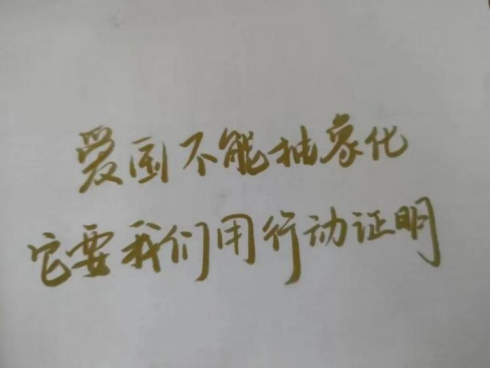 爱国不能抽象化
它要我们用行动证明